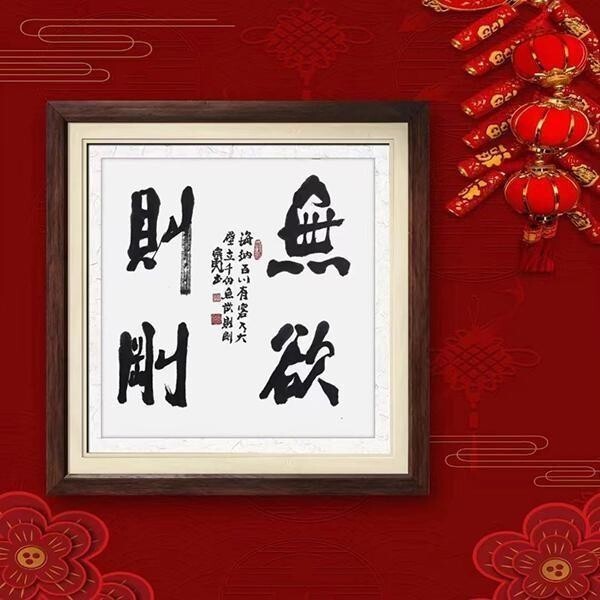 無欲
則剛
海納百川有容乃大
壁立千仞無欲則剛